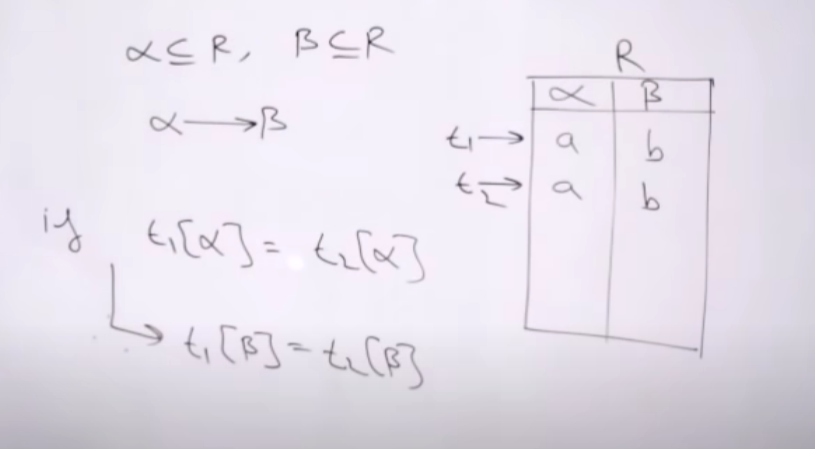 α ⊆ R, β ⊆ R
α → β
if t₁[α] = t₂[α]
↳ t₁[β] = t₂[β]
R
α β
t₁ → a b
t₂ → a b